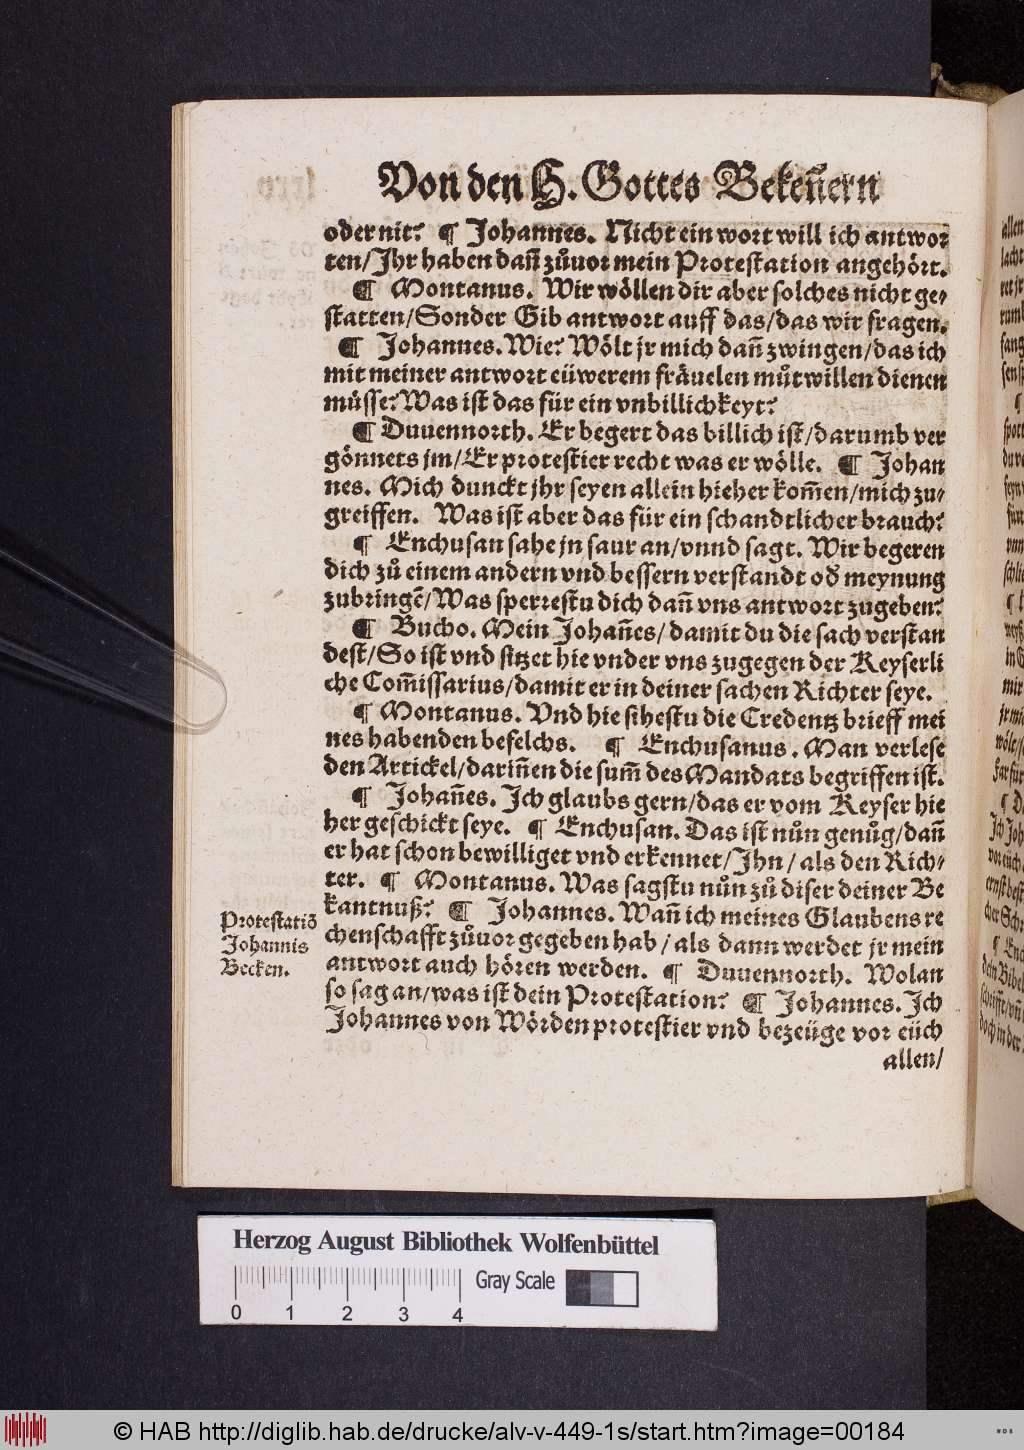 Von den H. Gottes Bekeñern
oder nit? ¶ Johannes. Nicht ein wort will ich antwor
ten/Jhr haben dañ zůuor mein Protestation angehört.
¶ Montanus. Wir wöllen dir aber solches nicht ge-
statten/Sonder Gib antwort auff das/das wir fragen.
¶ Johannes. Wie? Wölt jr mich dañ zwingen/das ich
mit meiner antwort eüwerem fräuelen můtwillen dienen
müsse? Was ist das für ein vnbillichkeyt?
¶ Duuennorth. Er begert das billich ist/darumb ver
gönnets jm/Er protestier recht was er wölle. ¶ Johan
nes. Mich dunckt jhr seyen allein hieher kom̃en/mich zu-
greiffen. Was ist aber das für ein schandtlicher brauch?
¶ Enchusan sahe jn saur an/vnnd sagt. Wir begeren
dich zů einem andern vnd bessern verstandt od̕ meynung
zubringẽ/Was sperrestu dich dañ vns antwort zugeben?
¶ Bucho. Mein Johañes/damit du die sach verstan
dest/So ist vnd sitzet hie vnder vns zugegen der Keyserli
che Com̃issarius/damit er in deiner sachen Richter seye.
¶ Montanus. Vnd hie sihestu die Credentz brieff mei
nes habenden befelchs. ¶ Enchusanus. Man verlese
den Artickel/dariñen die sum̃ des Mandats begriffen ist.
¶ Johañes. Jch glaubs gern/das er vom Keyser hie
her geschickt seye. ¶ Enchusan. Das ist nůn genůg/dañ
er hat schon bewilliget vnd erkennet/Jhn/als den Rich-
ter. ¶ Montanus. Was sagstu nůn zů diser deiner Be
kantnuß? ¶ Johannes. Wañ ich meines Glaubens re
chenschafft zůuor gegeben hab/als dann werdet jr mein
antwort auch hören werden. ¶ Duuennorth. Wolan
so sag an/was ist dein Protestation? ¶ Johannes. Jch
Johannes von Wörden protestier vnd bezeüge vor eüch
allen/
Protestatiõ
Johannis
Becken.
Herzog August Bibliothek Wolfenbüttel
Gray Scale
0 1 2 3 4
© HAB http://diglib.hab.de/drucke/alv-v-449-1s/start.htm?image=00184